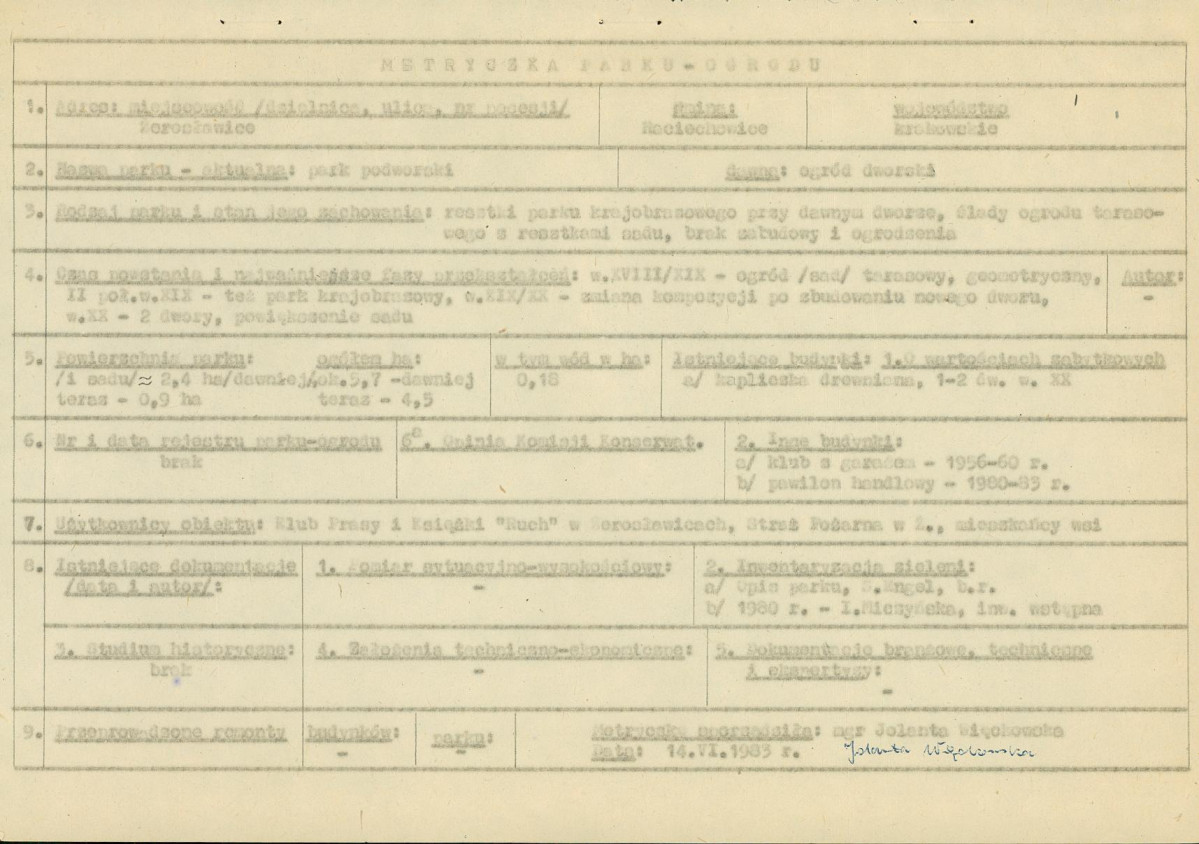 METRYCZKA PARKU-OGRODU
1. Adres: miejscowość /dzielnica, ulica, nr posesji/
Żerosławice
Gmina:
Raciechowice
województwo
krakowskie
2. Nazwa parku - aktualna: park podworski
dawna: ogród dworski
3. Rodzaj parku i stan jego zachowania: resztki parku krajobrazowego przy dawnym dworze, ślady ogrodu taraso-
wego z resztkami sadu, brak zabudowy i ogrodzenia
4. Czas powstania i najważniejsze fazy przekształceń: w.XVIII/XIX - ogród /sad/ tarasowy, geometryczny,
II poł.w.XIX - też park krajobrazowy, w.XIX/XX - zmiana kompozycji po zbudowaniu nowego dworu,
w.XX - 2 dwory, powiększenie sadu
Autor:
-
5. Powierzchnia parku:
/i sadu/≈ 2,4 ha/dawniej/
teraz - 0,9 ha
ogółem ha:
ok.5,7 -dawniej
teraz - 4,5
w tym wód w ha:
0,18
Istniejące budynki: 1.O wartościach zabytkowych
a/ kapliczka drewniana, 1-2 ćw. w. XX
6. Nr i data rejestru parku-ogrodu
brak
6a. Opinia Komisji Konserwat.
2. Inne budynki:
a/ klub z garażem - 1956-60 r.
b/ pawilon handlowy - 1980-83 r.
7. Użytkownicy obiektu: Klub Prasy i Książki "Ruch" w Żerosławicach, Straż Pożarna w Ż., mieszkańcy wsi
8. Istniejące dokumentacje
/data i autor/:
1. Pomiar sytuacyjno-wysokościowy:
-
2. Inwentaryzacja zieleni:
a/ Opis parku, S.Engel, b.r.
b/ 1980 r. - I.Miczyńska, inw. wstępna
3. Studium historyczne:
brak
4. Założenia techniczno-ekonomiczne:
-
5. Dokumentacje branżowe, techniczne
i ekspertyzy:
-
9. Przeprowadzone remonty
budynków:
-
parku:
-
Metryczkę sporządziła: mgr Jolanta Więckowska
Data: 14.VI.1983 r.
Jolanta Więckowska